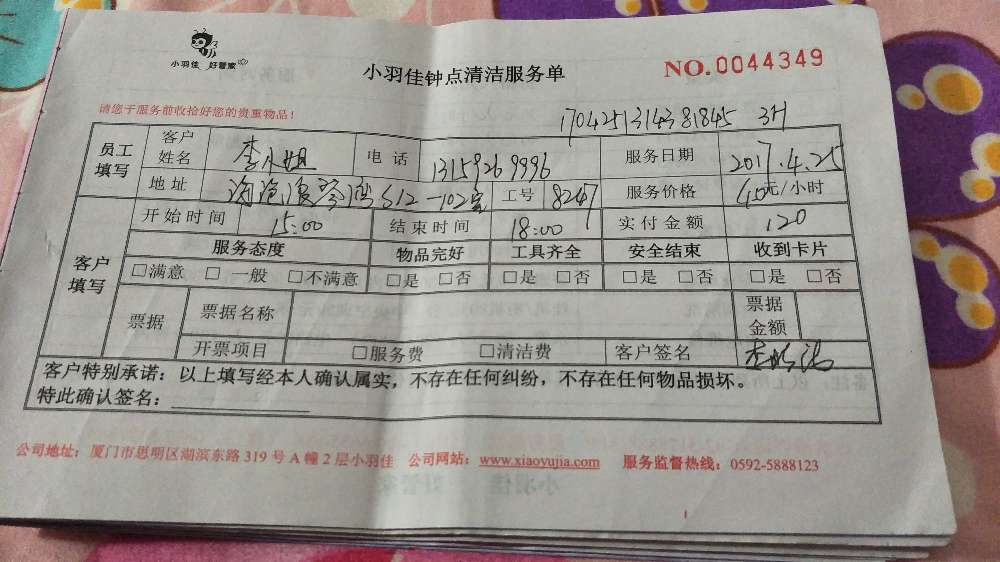 小羽佳 好管家
小羽佳钟点清洁服务单
NO.0044349
请您于服务前收拾好您的贵重物品!
1704251314381845 3H
员工填写 客户姓名 李小姐 电话 13159269996 服务日期 2017.4.25
地址 512-102室 工号 8247 服务价格 40元/小时
客户填写 开始时间 15:00 结束时间 18:00 实付金额 120
服务态度 物品完好 工具齐全 安全结束 收到卡片
□满意 □一般 □不满意 □是 □否 □是 □否 □是 □否 □是 □否
票据 票据名称 票据金额
开票项目 □服务费 □清洁费 客户签名
客户特别承诺:以上填写经本人确认属实,不存在任何纠纷,不存在任何物品损坏。
特此确认签名:
公司地址:厦门市思明区湖滨东路 319 号 A 幢 2 层小羽佳 公司网站:www.xiaoyujia.com 服务监督热线:0592-5888123